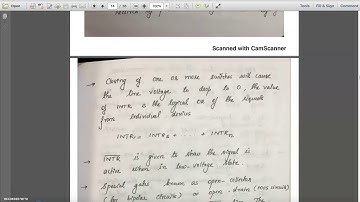 Tools
Fill & Sign
Comment
14
100%
Scanned with CamScanner
→ Closing of one or more switches will cause
the line voltage to drop to 0, the value
of INTR is the logical OR of the requests
from individual devices
INTR = INTR1 + ..... + INTRn
→ INTR is given to show the signal is
active when in low-voltage state.
→ Special gates known as open-collector
(for bipolar circuits) or open-drain (MOS circuits)